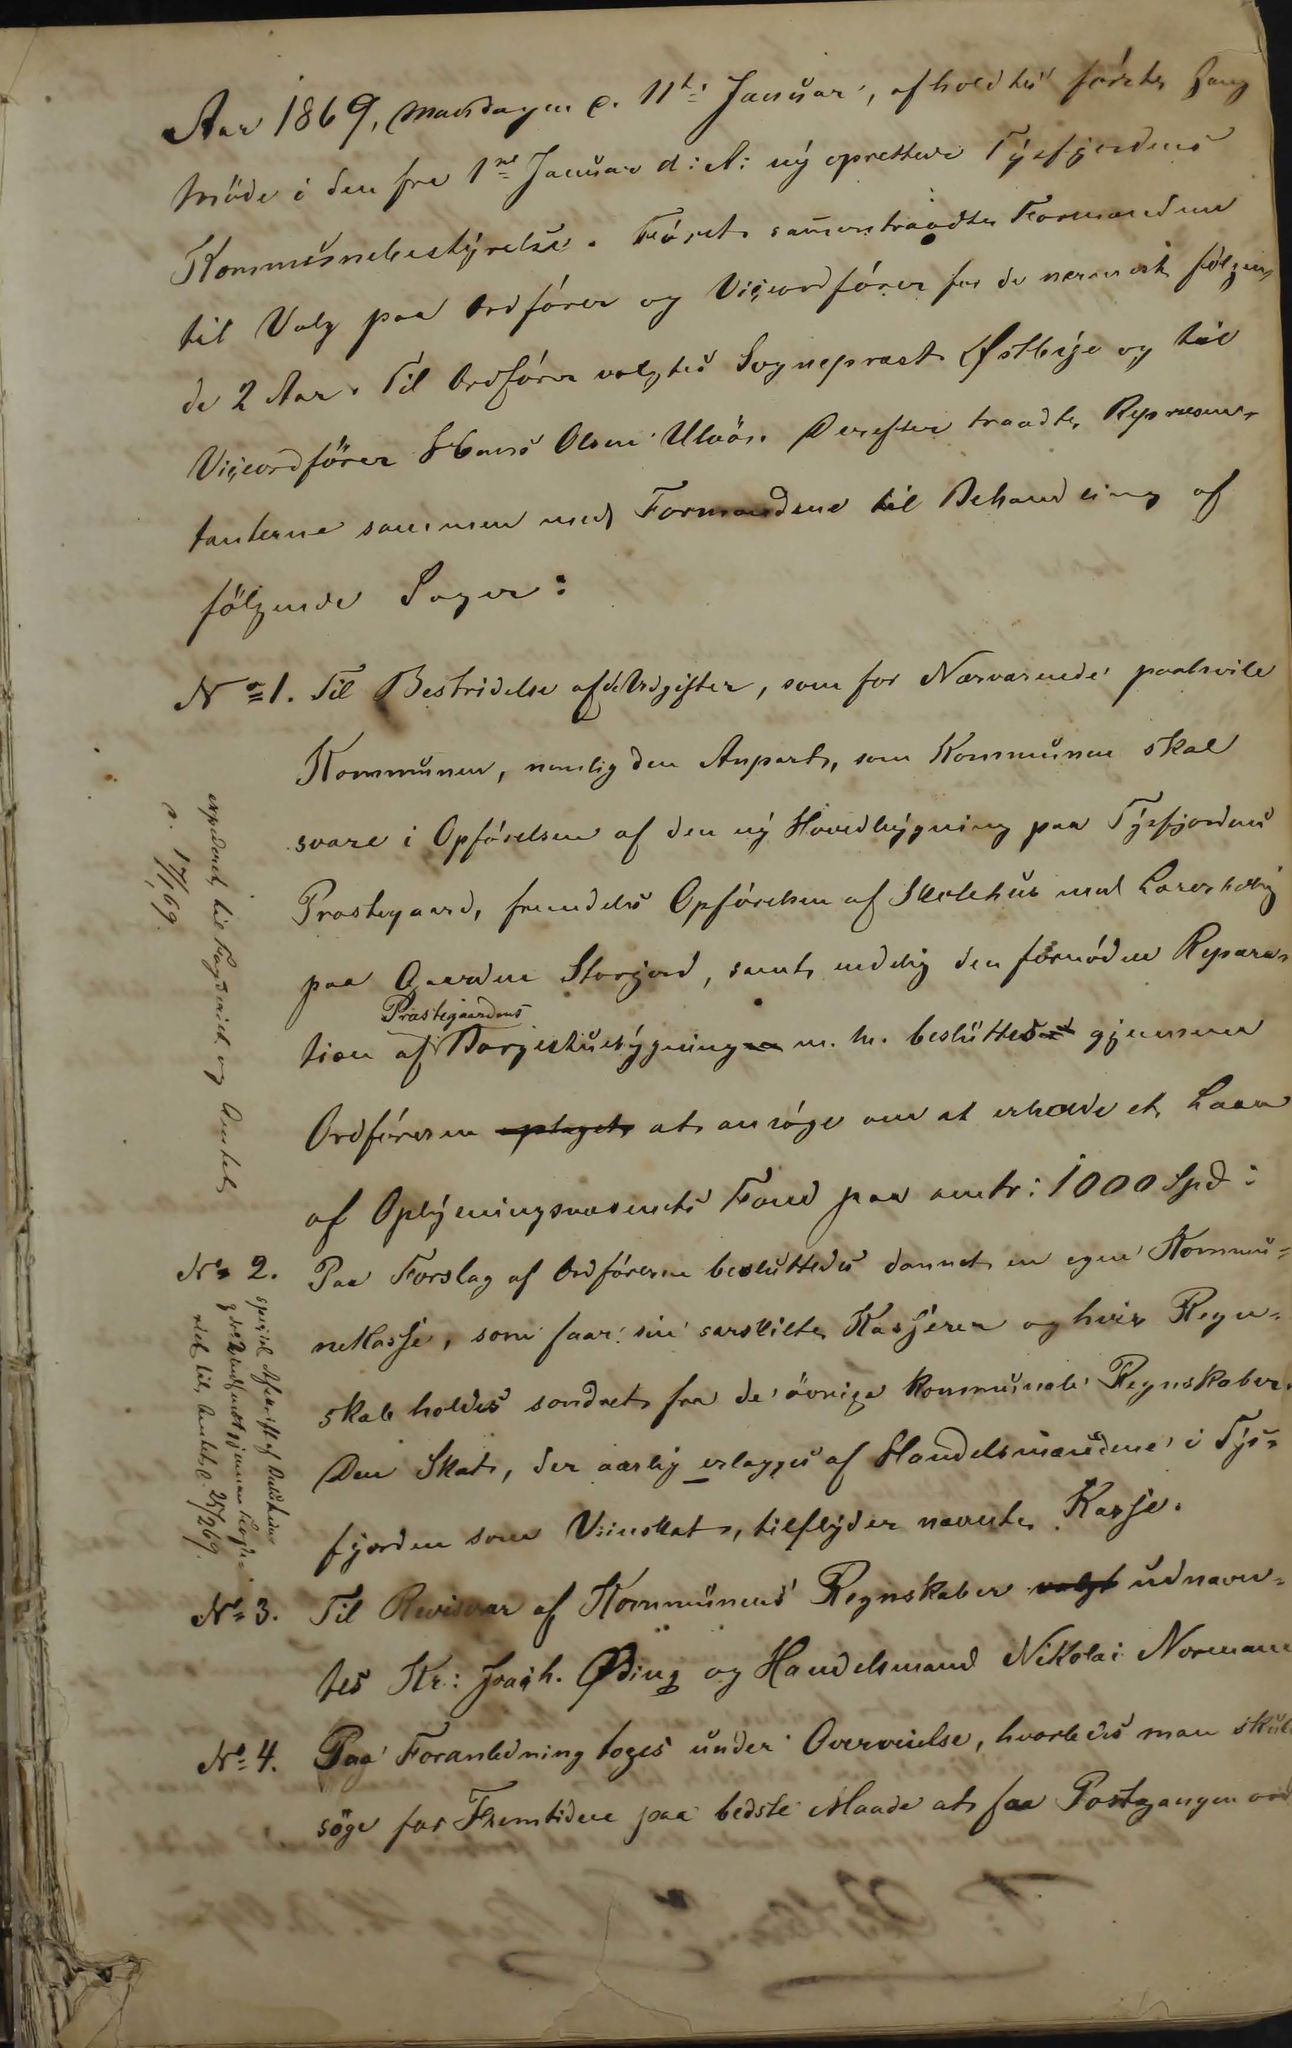 Aar 1869, Mandagen d. 11te Januar, afholdtes første Gang
Møde i den fra 1ste Januar d: A: ny oprettede Tysfjordens
Kommunebestyrelse. Først sammentraadte Formændene
til Valg paa Ordfører og Viceordfører for de nærmest følgen-
de 2 Aar. Til Ordfører valgtes Sogneprest Østbye og til
Viceordfører Hans Olsen Ulvøs. Derefter traadte Repræsen-
tanterne sammen med Formændene til Behandling af
følgende Sager:
No 1. Til Bestridelse af de Udgifter, som for Nærværende paahvile
Kommunen, nemlig den Anpart, som Kommunen skal
svare i Opførelsen af den ny Hovedbygning paa Tysfjordens
Præstegaard, fremdeles Opførelsen af Skolehus med Lærerbolig
paa Gaarden Storjord, samt endelig den fornødne Repara-
Præstegaardens
tion af Borgestuebygning m. m. besluttedes gjennem
Ordføreren optaget at ansøge om at erholde et Laan
af Oplysningsvæsenets Fond paa omtr: 1000 Spd:
expederet til Fogderiet og Amtet
d. 17/1 69
No 2. Paa Forslag af Ordføreren besluttedes dannet en egen Kommu-
nekasse, som faar sin særskilte Kasserer og hvis Regn-
skab holdes sondret fra de øvrige kommunale Regnskaber.
Den Skat, der aarlig erlægges af Handelsmændene i Tys-
fjorden som Vinskat, tilflyder nævnte Kasse.
Afskrift af
til Amtet d. 25/2 69.
No 3. Til Revisorer af Kommunens Regnskaber valgt udnævn-
tes Kr: Joach. Øding og Handelsmand Nikolai Normann
No 4. Paa Foranledning toges under Overveielse, hvorledes man skul
søge for Fremtiden paa bedste Maade at faa Postgangen ord